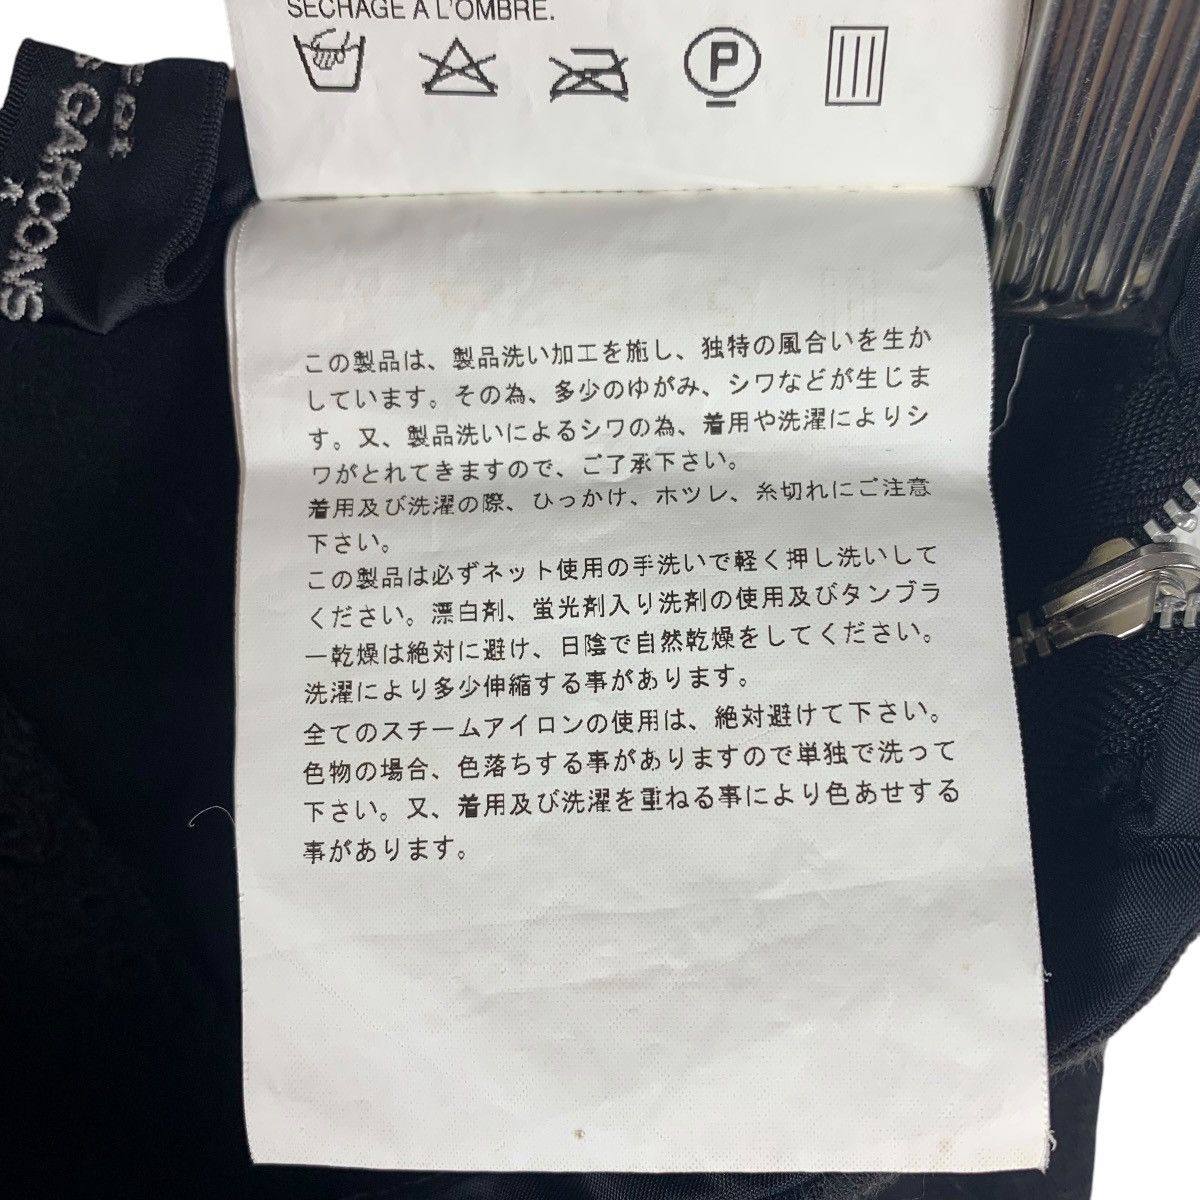 SECHAGE A L'OMBRE.
P
GARCONS
この製品は、製品洗い加工を施し、独特の風合いを生か
しています。その為、多少のゆがみ、シワなどが生じま
す。又、製品洗いによるシワの為、着用や洗濯によりシ
ワがとれてきますので、ご了承下さい。
着用及び洗濯の際、ひっかけ、ホツレ、糸切れにご注意
下さい。
この製品は必ずネット使用の手洗いで軽く押し洗いして
ください。漂白剤、蛍光剤入り洗剤の使用及びタンブラ
ー乾燥は絶対に避け、日陰で自然乾燥をしてください。
洗濯により多少伸縮する事があります。
全てのスチームアイロンの使用は、絶対避けて下さい。
色物の場合、色落ちする事がありますので単独で洗って
下さい。又、着用及び洗濯を重ねる事により色あせする
事があります。